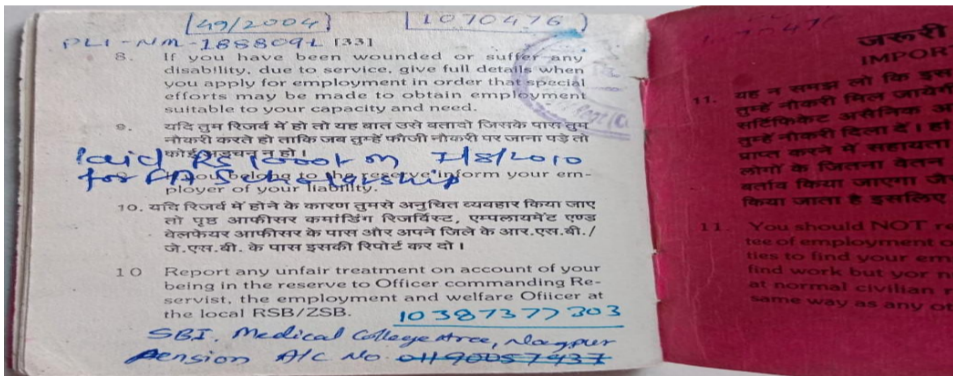 [49/2004] [1070476)
PLI-NM-188809L [33]
8. If you have been wounded or suffer any
disability, due to service, give full details when
you apply for employment in order that special
efforts may be made to obtain employment
suitable to your capacity and need.
9. यदि तुम रिजर्व में हो तो यह बात उसे बतादो जिसके पास तुम
नौकरी करते हो ताकि जब तुम्हें फौजी नौकरी पर जाना पड़े तो
कोई न हो।
paid Rs 1000/ on 7/8/2010
for Scholarship
belong to the reserve inform your em-
ployer of your liability.
10. यदि रिजर्व में होने के कारण तुमसे अनुचित व्यवहार किया जाए
तो पृष्ठ आफीसर कमांडिंग रिजर्विस्ट, एम्पलायमेंट एण्ड
वेलफेयर आफीसर के पास और अपने जिले के आर.एस.बी./
जे.एस.बी. के पास इसकी रिपोर्ट कर दो।
10 Report any unfair treatment on account of your
being in the reserve to Officer commanding Re-
servist, the employment and welfare Ofiicer at
the local RSB/ZSB. 10387377303
SBI. Medical College Area, Nagpur
Pension A/C No 01190057437
जरूरी
IMPOR
11. यह न समझ लो कि इस
तुम्हें नौकरी मिल जायेगी
सर्टिफिकेट असैनिक अ
तुम्हें नौकरी दिला दें। हाँ
प्राप्त करने में सहायता
लोगों के जितना वेतन
बर्ताव किया जाएगा जै
किया जाता है इसलिए
11 You should NOT re
tee of employment o
ties to find your em
find work but yor n
at normal civilian r
same way as any ot